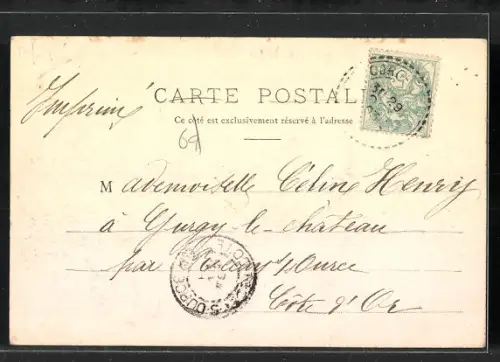 Imprimé
CARTE POSTALE
Ce côté est exclusivement réservé à l'adresse
Mademoiselle Céline Henry
à Gurgy-le-château
par Recey s/Ource
Côte d'Or